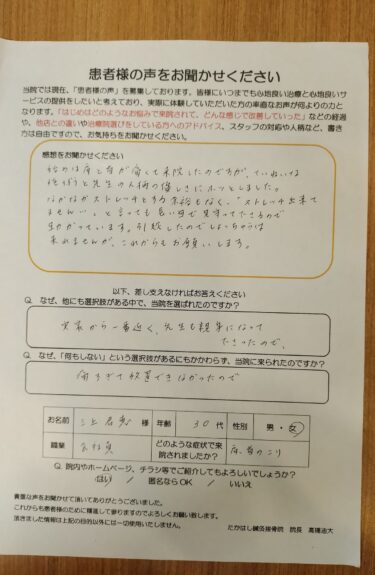 患者様の声をお聞かせください
当院では現在、「患者様の声」を募集しております。皆様にいつまでも心地良い治療と心地良いサ
ービスの提供をしたいと考えており、実際に体験していただいた方の率直なお声が何よりの力と
なります。「はじめはどのようなお悩みで来院されて、どんな感じで改善していった」などの経過
や、他店との違いや治療院選びをしている方へのアドバイス、スタッフの対応や人柄など、書き
方は自由ですので、お気持ちをお聞かせください。
感想をお聞かせください
始めは肩と首が痛くて来院したのですが、ていねいな
施術と先生の人柄の優しさにホッとしました。
なかなかストレッチする余裕もなく、"ストレッチ出来て
ません"。と言っても長い目で見守ってくださるので
助かっています。引越したのでしょっちゅうは
来れませんが、これからもお願いします。
以下、差し支えなければお答えください
Q. なぜ、他にも選択肢がある中で、当院を選ばれたのですか？
実家から一番近く、先生も親身になって
くださったので、
Q. なぜ、「何もしない」という選択肢があるにもかかわらず、当院に来られたのですか？
痛すぎて放置できなかったので
お名前 様 年齢 30代 性別 男・女
職業 会社員 どのような症状で来
院されましたか？ 肩、首のこり
Q. 院内やホームページ、チラシ等でご紹介してもよろしいでしょうか？
はい / 匿名ならOK / いいえ
貴重な声をお聞かせて頂いてありがとうございました。
これからも患者様のために精進して参りますのでよろしくお願い致します。
頂きました情報は上記の目的以外には一切使用いたしません。
たかはし鍼灸接骨院 院長 高橋